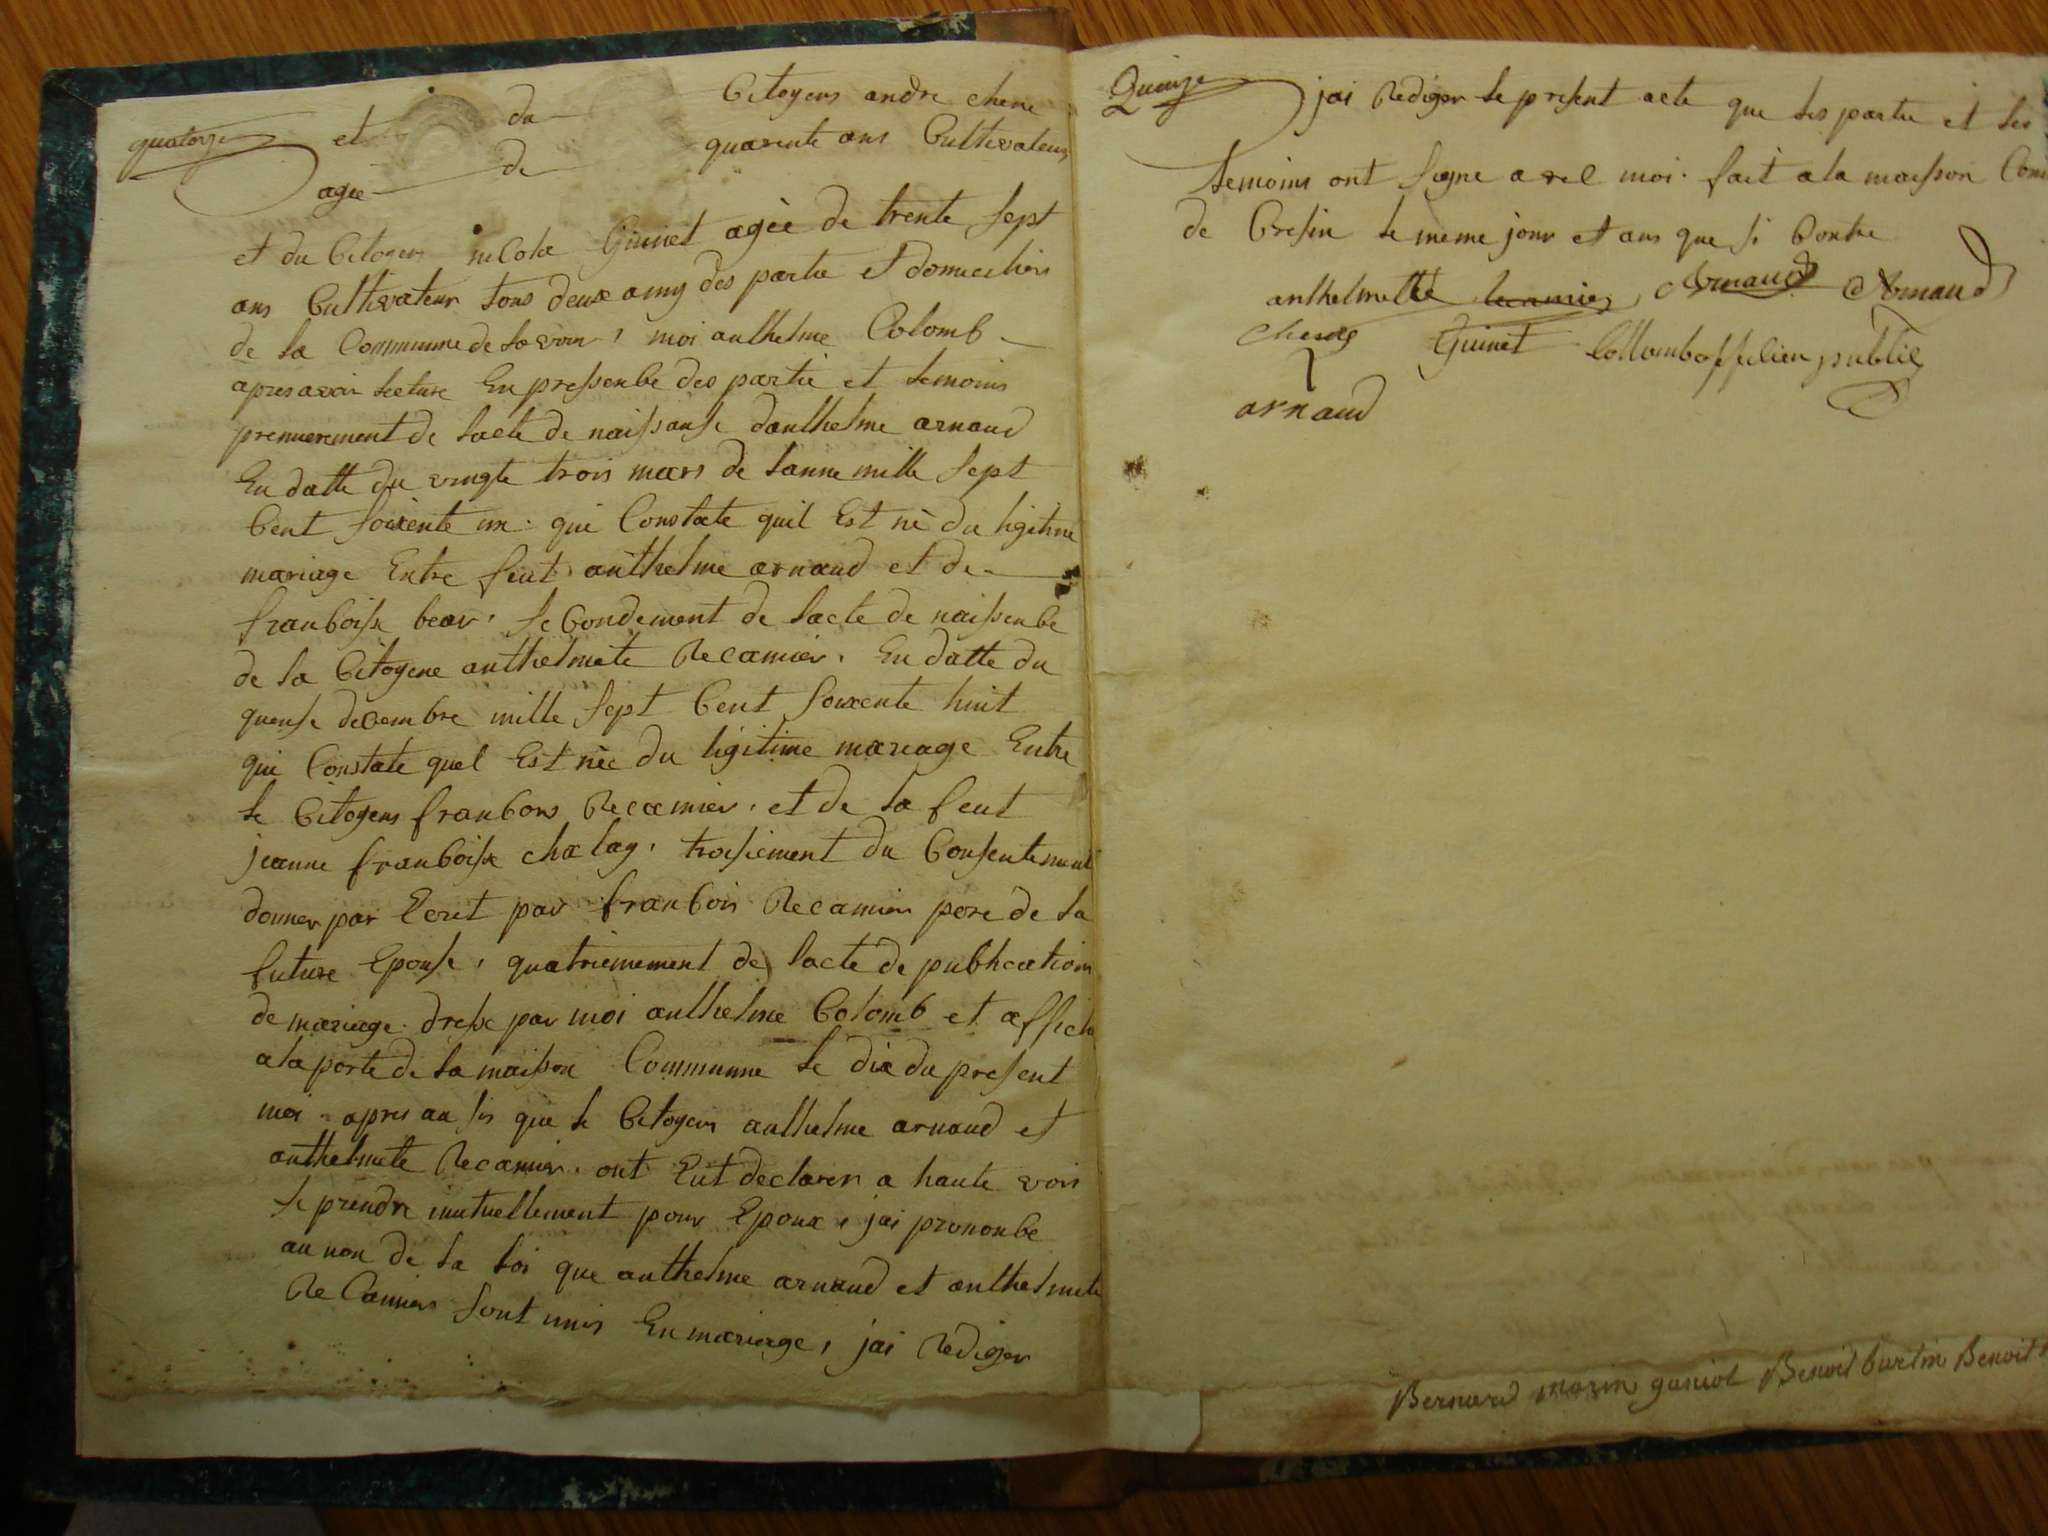 quatorze et du Citoyens andre chene
agée de quarente ans Cultivateur
et du Citoyens nicola Guinet agée de trente sept
ans Cultivateur tous deux amy des partie et domicilies
de la Commune de lavour, moi anthelme Colomb
apres avoir lecture En pressence des partie et temoins
premierement de lacte de naissanse danthelme arnaud
En datte du vingte trois mars de lanne mille sept
Cent soixente un. qui Constate quil Est né du ligitime
mariage Entre feut anthelme arnaud et de
francoise bear, secondement de lacte de naissence
de la Citoyene anthelmete Recamier. En datte du
quense decembre mille sept Cent soixente huit
qui Constate quel Est née du ligitime mariage Entre
le Citoyens francois Recamier, et de la feut
jeanne francoise chalay, troisiement du Consentement
donner par Ecrit par francois Recamier pere de la
future Epouse, quatriemement de lacte de publication
de mariage dresse par moi anthelme Colomb et affiche
a la porte de la maison Commune le dix du present
moi. apres ausis que le Citoyens anthelme arnaud et
anthelmete Recamier. ont Eut declarer a haute vois
se prendre mutuellement pour Epoux, jai prononce
au non de la loi que anthelme arnaud et anthelmete
Recamier sont unis En mariage, jai Rediger
Quinze jai Rediger le present acte que les partie et les
temoins ont signe avec moi. fait a la maison Com
de Cresin le meme jour et ans que si Contre
anthelmette Recamier, Arnaud Arnaud
chene Guinet Collomb officier public
arnaud
Bernard morin guniot Benoit burtin Benoit